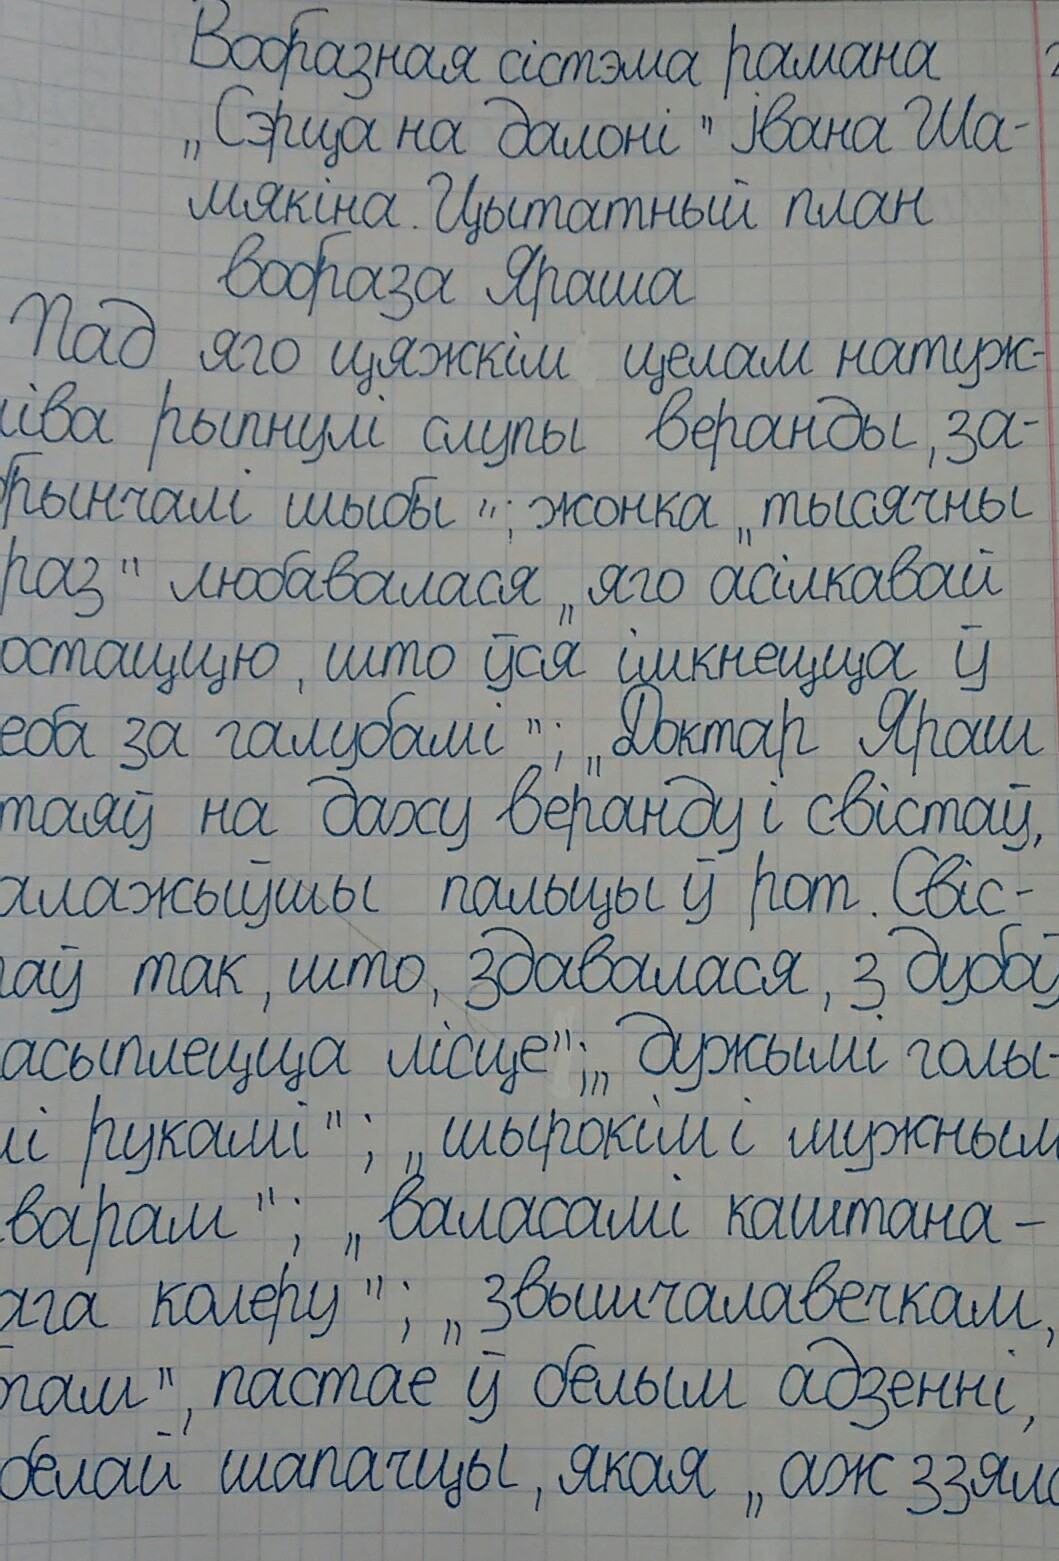 Вобразная сістэма рамана
„Сэрца на далоні" Івана Ша-
мякіна. Цытатный план
вобраза Яраша
Пад яго цяжкім целам натуж-
ліва рыпнулі слупы веранды, за-
брынчалі шыбы"; жонка „тысячны
раз" любавалася „яго асілкавай
остаццю, што ўся імкнецца ў
еба за галубамі"; „Доктар Яраш
таяў на даху веранду і свістаў,
алажыўшы пальцы ў рот. Свіс-
таў так, што, здавалася, з дубоў
асыплецца лісце"; „дужымі голы-
мі рукамі"; „шырокім і мужным
варам"; „валасамі каштана-
ага колеру"; „звышчалавечкам,
там", пастае ў белым адзенні,
белай шапачцы, якая „аж ззяла